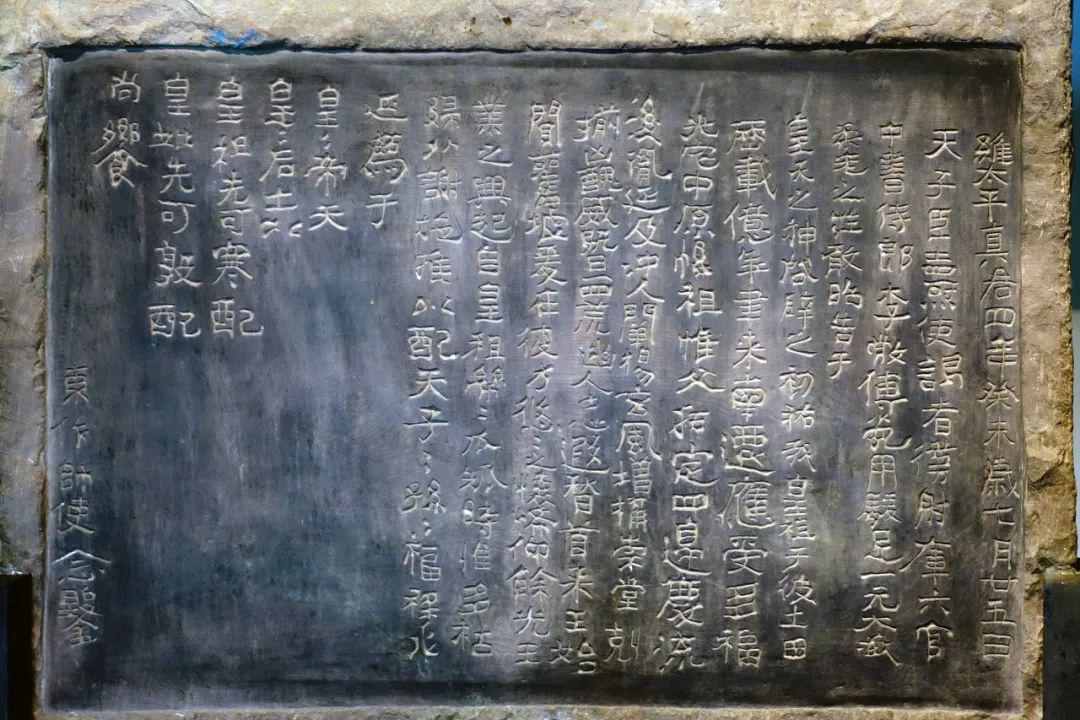 維太平真君四年癸未歲七月廿五日
天子臣燾使謁者僕射庫六官
中書侍郎李敞傅㝹用駿足一元大武
柔毛之牲敢昭告于
皇天之神啓辟之初祐我皇祖于彼土田
歷載億年聿來南遷應受多福
光宅中原惟祖惟父拓定四邊慶流
後胤延及沖人闡揚玄風增構崇堂剋
揃凶醜威暨四荒幽人忘遐稽首來王始
聞舊墟爰在彼方悠〻之懷希仰餘光王
業之興起自皇祖綿〻瓜瓞時惟多祜
歸以謝施推以配天子〻孫〻福祿永
延薦于
皇〻帝天
皇〻后土
皇祖先可寒配
皇妣先可敦配
尚饗
東作帥使念鑿